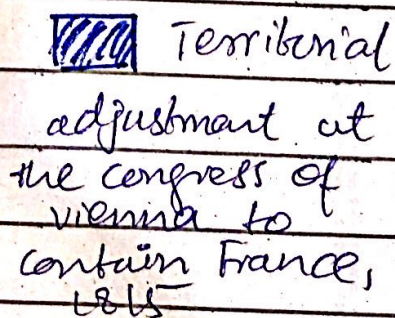 Territorial
adjustment at
the congress of
vienna to
contain France,
1815